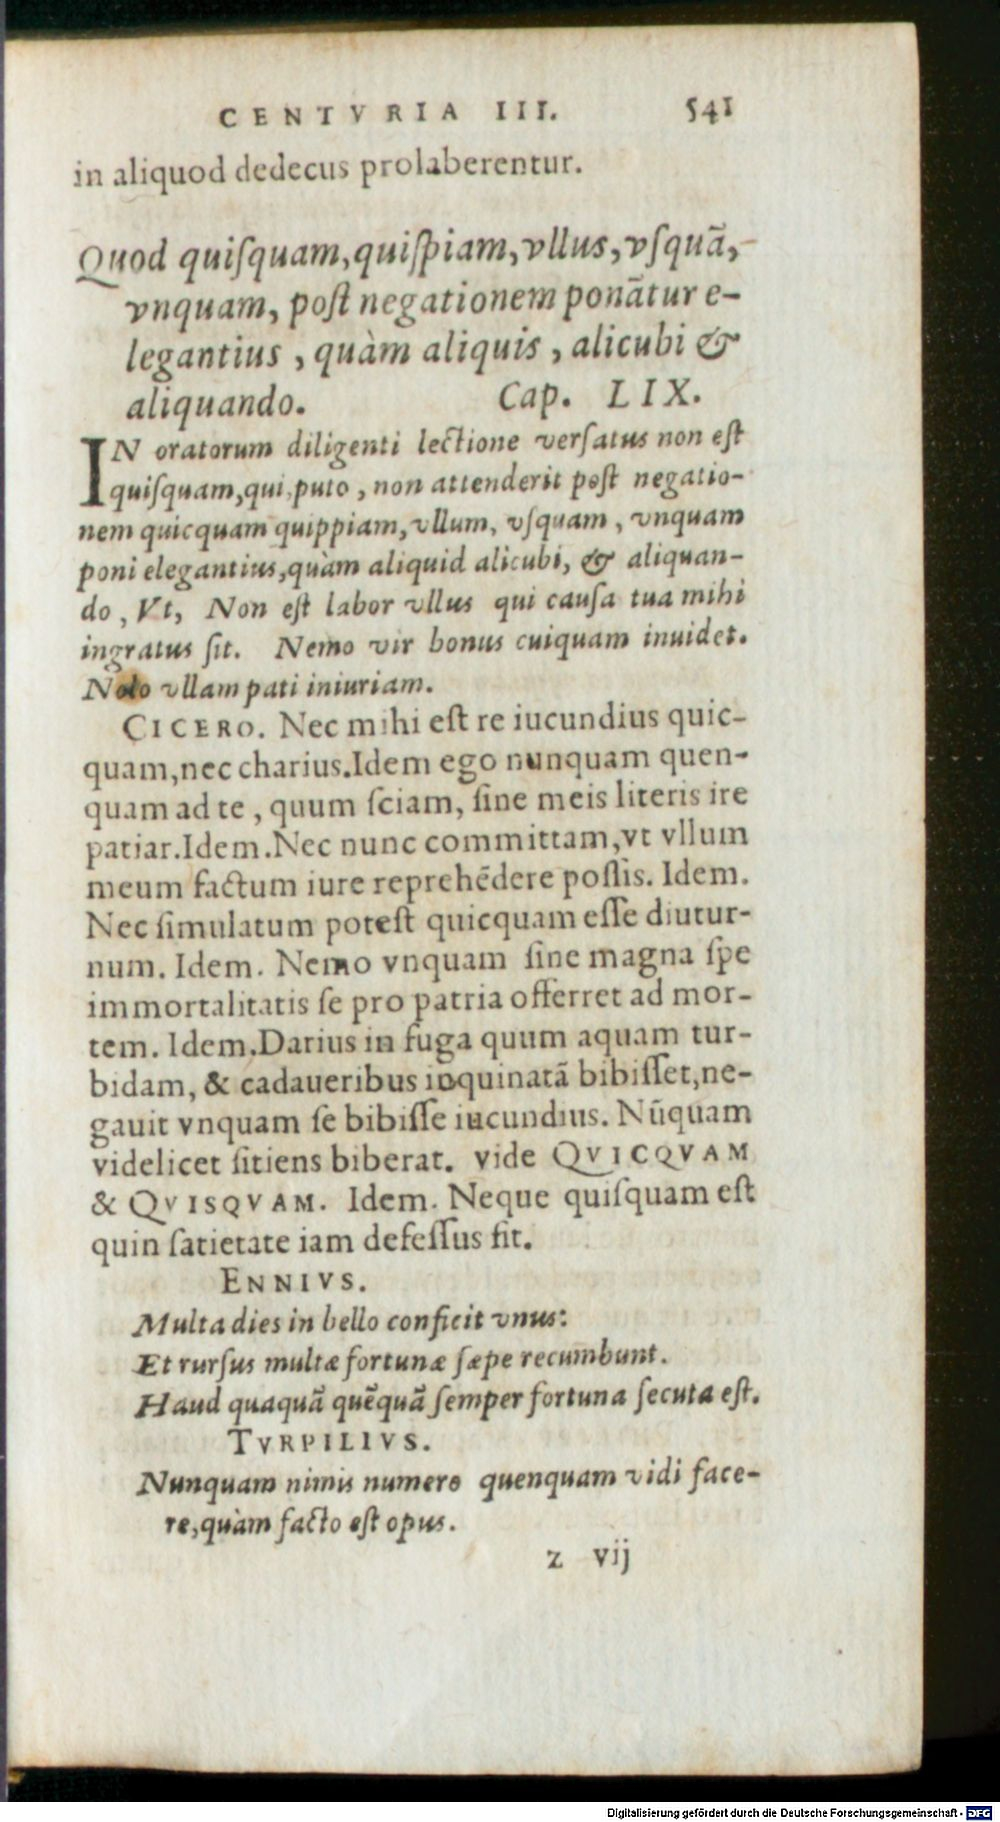 CENTVRIA III. 541
in aliquod dedecus prolaberentur.
Quod quiſquam, quiſpiam, vllus, vſquã,
vnquam, poſt negationem ponãtur e-
legantius, quàm aliquis, alicubi &
aliquando. Cap. LIX.
IN oratorum diligenti lectione verſatus non eſt
quiſquam, qui, puto, non attenderit poſt negatio-
nem quicquam quippiam, vllum, vſquam, vnquam
poni elegantius, quàm aliquid alicubi, & aliquan-
do, Vt, Non eſt labor vllus qui cauſa tua mihi
ingratus ſit. Nemo vir bonus cuiquam inuidet.
Nolo vllam pati iniuriam.
CICERO. Nec mihi eſt re iucundius quic-
quam, nec charius. Idem ego nunquam quen-
quam ad te, quum ſciam, ſine meis literis ire
patiar. Idem. Nec nunc committam, vt vllum
meum factum iure reprehẽdere poſſis. Idem.
Nec ſimulatum poteſt quicquam eſſe diutur-
num. Idem. Nemo vnquam ſine magna ſpe
immortalitatis ſe pro patria offerret ad mor-
tem. Idem. Darius in fuga quum aquam tur-
bidam, & cadaueribus inquinatã bibiſſet, ne-
gauit vnquam ſe bibiſſe iucundius. Nũquam
videlicet ſitiens biberat. vide QVICQVAM
& QVISQVAM. Idem. Neque quiſquam eſt
quin ſatietate iam defeſſus ſit.
ENNIVS.
Multa dies in bello conficit vnus:
Et rurſus multæ fortunæ ſæpe recumbunt.
Haud quaquã quẽquã ſemper fortuna ſecuta eſt.
TVRPILIVS.
Nunquam nimis numero quenquam vidi face-
re, quàm facto eſt opus.
z vij
Digitalisierung gefördert durch die Deutsche Forschungsgemeinschaft - DFG